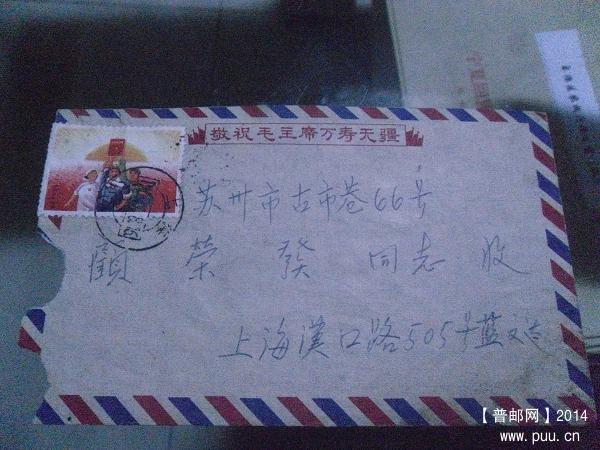 敬祝毛主席万寿无疆
苏州市古市巷66号
顧 荣 發 同志 收
上海漢口路505号蓝
【普邮网】2014
www.puu.cn